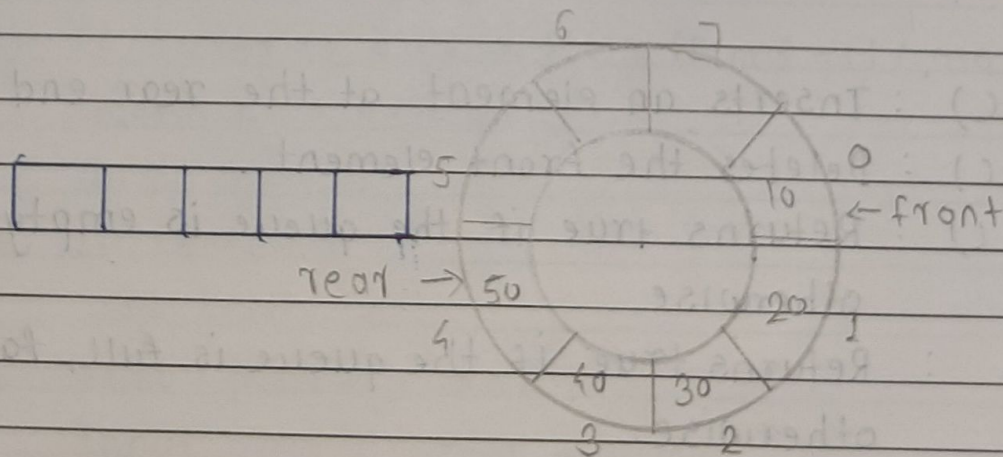 6 7
5 0
10
← front
rear → 50
20 1
4
40 30
3 2